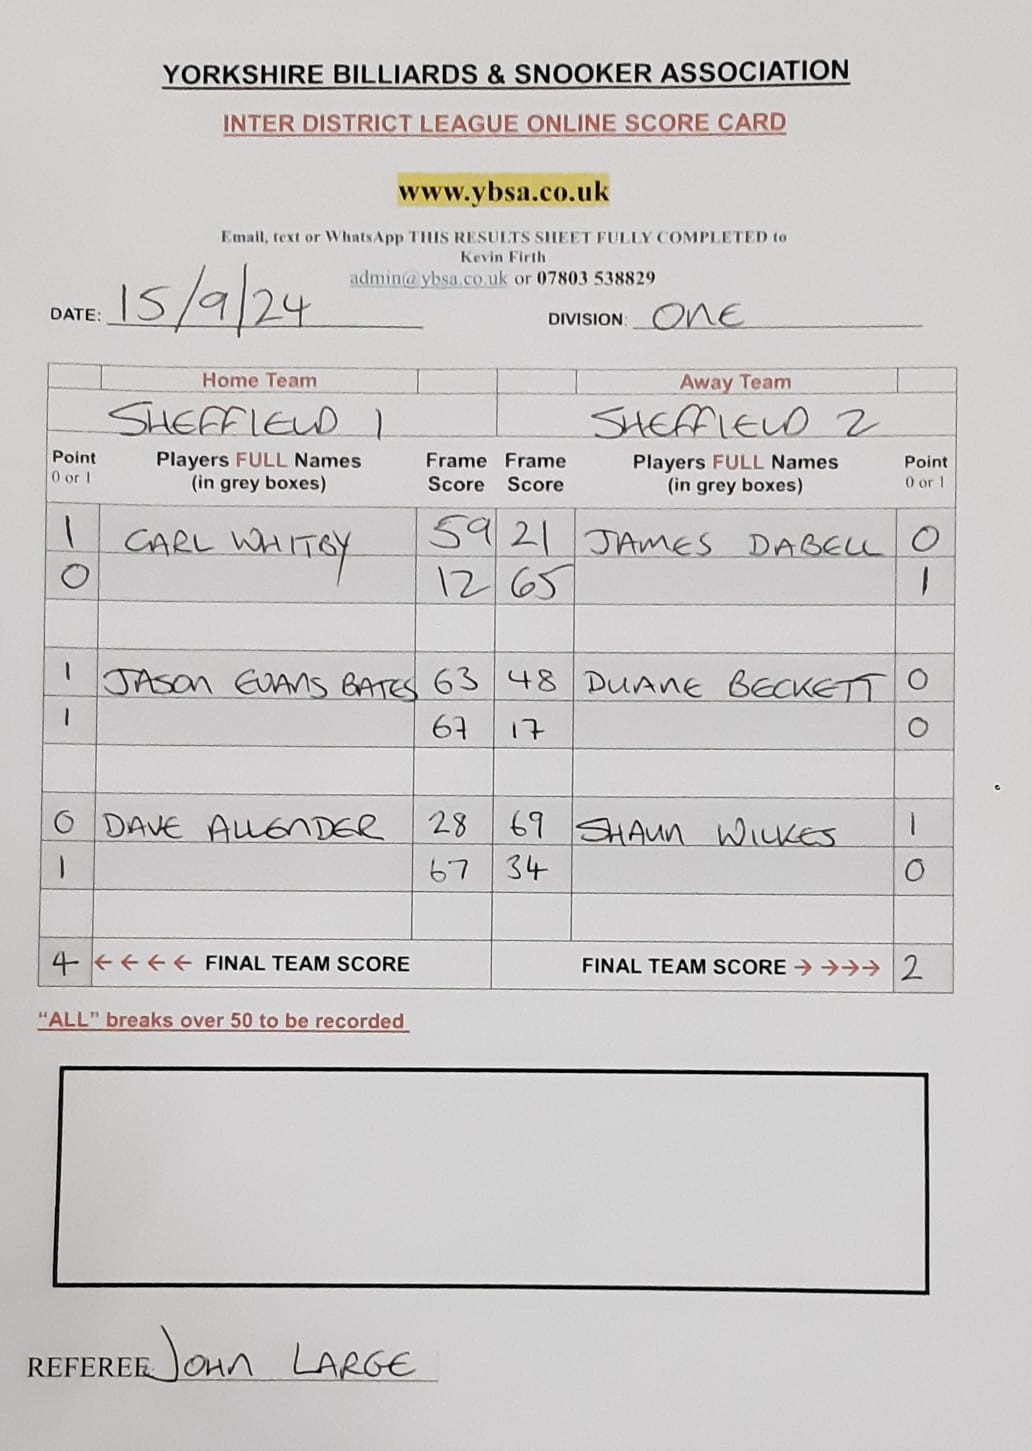 YORKSHIRE BILLIARDS & SNOOKER ASSOCIATION
INTER DISTRICT LEAGUE ONLINE SCORE CARD
www.ybsa.co.uk
Email, text or WhatsApp THIS RESULTS SHEET FULLY COMPLETED to
Kevin Firth
admin@ybsa.co.uk or 07803 538829
DATE: 15/9/24 DIVISION: ONE
Home Team Away Team
SHEFFIELD 1 SHEFFIELD 2
Point Players FULL Names Frame Frame Players FULL Names Point
0 or 1 (in grey boxes) Score Score (in grey boxes) 0 or 1
1 CARL WHITBY 59 21 JAMES DABELL 0
0 12 65 1
1 JASON EVANS BATES 63 48 DUANE BECKETT 0
1 67 17 0
0 DAVE ALLENDER 28 69 SHAUN WILKES 1
1 67 34 0
4 ←←←← FINAL TEAM SCORE FINAL TEAM SCORE →→→→ 2
“ALL” breaks over 50 to be recorded
REFEREE JOHN LARGE